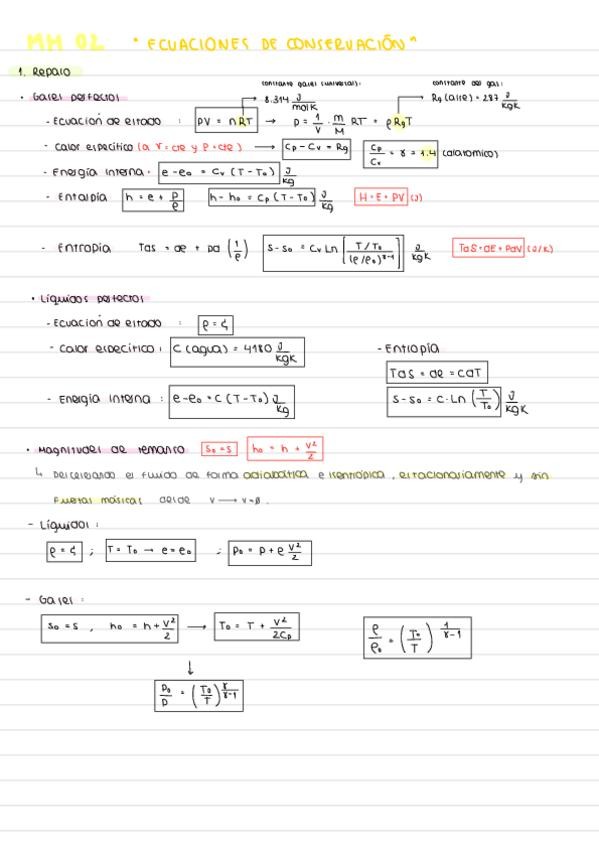 MM 02 "ECUACIONES DE CONSERVACIÓN"
1. Repaso
constante gases (universal): constante del gas:
8.314 J/molK Rg (aire) = 287 J/kgK
• Gases perfectos
- Ecuación de estado : PV = nRT → P = 1/V · m/M RT = ρRgT
- Calor específico (a V = cte y P = cte) → Cp - Cv = Rg Cp/Cv = γ = 1.4 (diatómico)
- Energía interna · e - e₀ = Cv (T - T₀) J/kg
- Entalpía h = e + P/ρ h - h₀ = Cp (T - T₀) J/kg H = E + PV (J)
- Entropía Tds = de + pd (1/ρ) s - s₀ = Cv Ln [T/T₀ / (ρ/ρ₀)^γ-1] J/kgK TdS = dE + PdV (J/K)
• Líquidos perfectos
- Ecuación de estado : ρ = ς
- Calor específico : C (agua) = 4180 J/kgK - Entropía
Tds = de = CdT
- Energía interna : e - e₀ = C (T - T₀) J/kg s - s₀ = C · Ln (T/T₀) J/kgK
• Magnitudes de remanso s₀ = s h₀ = h + v²/2
↳ Decelerando el fluido de forma adiabática e isentrópica, estacionariamente y sin
fuerzas másicas desde v → v=ø.
- Líquidos :
ρ = ς ; T = T₀ → e = e₀ ; P₀ = P + ρ v²/2
- Gases :
s₀ = s , h₀ = h + v²/2 → T₀ = T + v²/2Cp ρ/ρ₀ = (T₀/T)^1/γ-1
↓
P₀/P = (T₀/T)^γ/γ-1